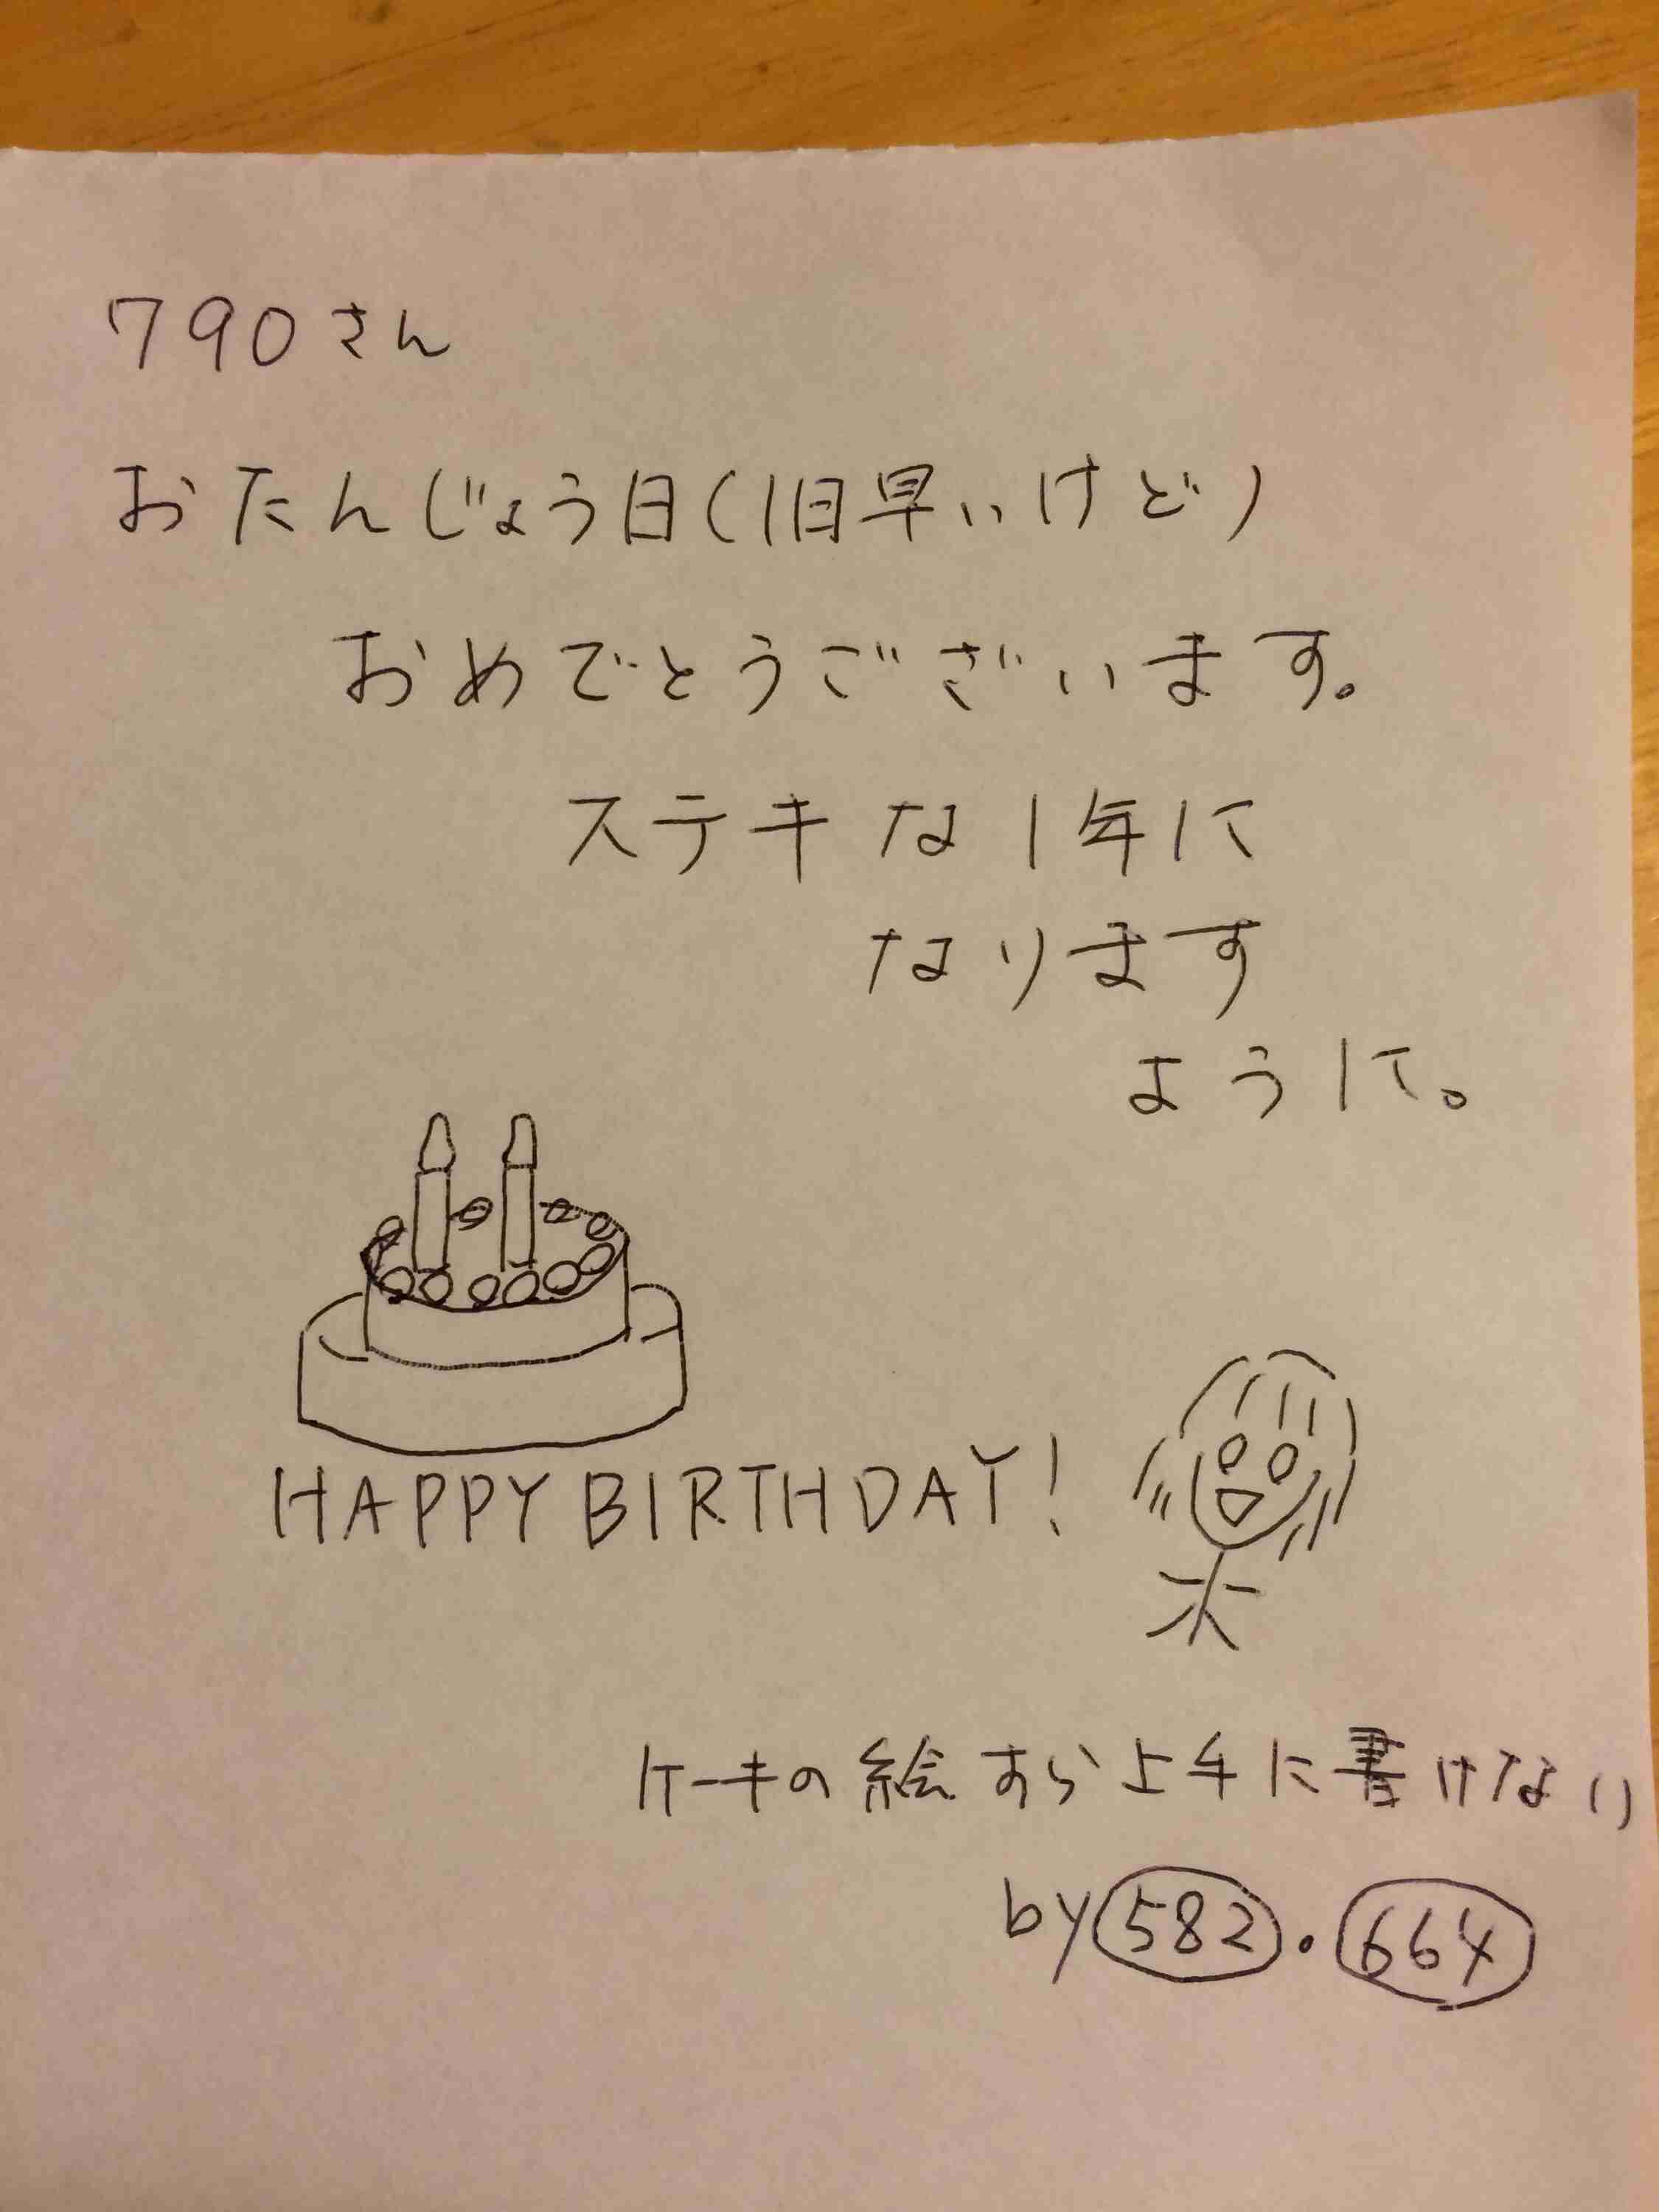 790さん
おたんじょう日(1日早いけど)
おめでとうございます。
ステキな1年に
なります
ように。
HAPPY BIRTHDAY!
ケーキの絵すら上手に書けない
by 582.664